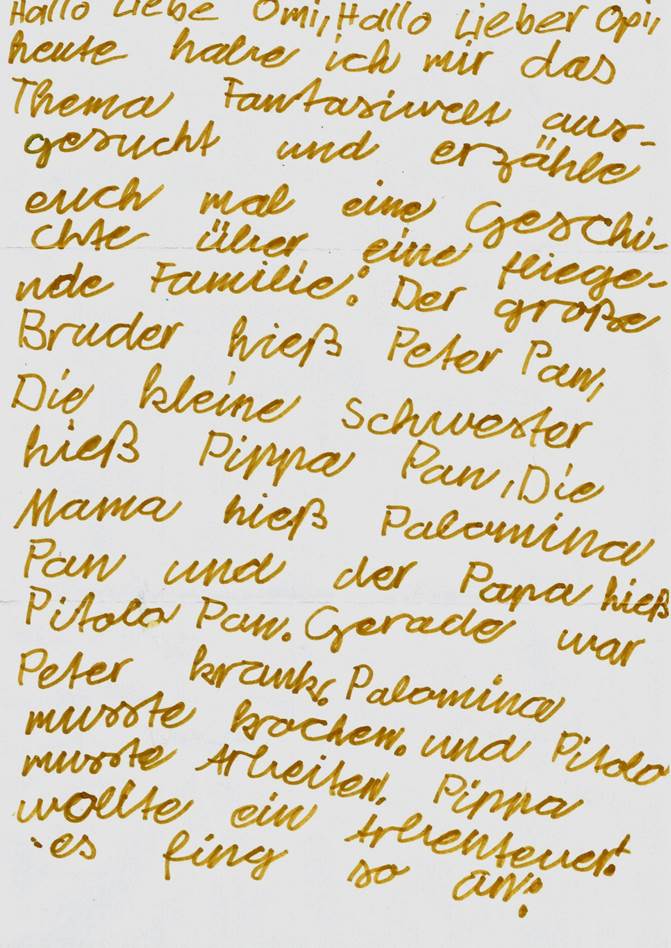 Hallo Liebe Omi, Hallo Lieber Opi,
heute habe ich mir das
Thema Fantasiwelt aus-
gesucht und erzähle
euch mal eine Geschi-
chte über eine fliege-
nde Familie: Der große
Bruder hieß Peter Pan,
Die kleine Schwester
hieß Pippa Pan, Die
Mama hieß Palomina
Pan und der Papa hieß
Pitolo Pan. Gerade war
Peter krank. Palomina
musste kochen. und Pitolo
musste Arbeiten. Pippa
wollte ein Arbenteuer!
es fing so an: